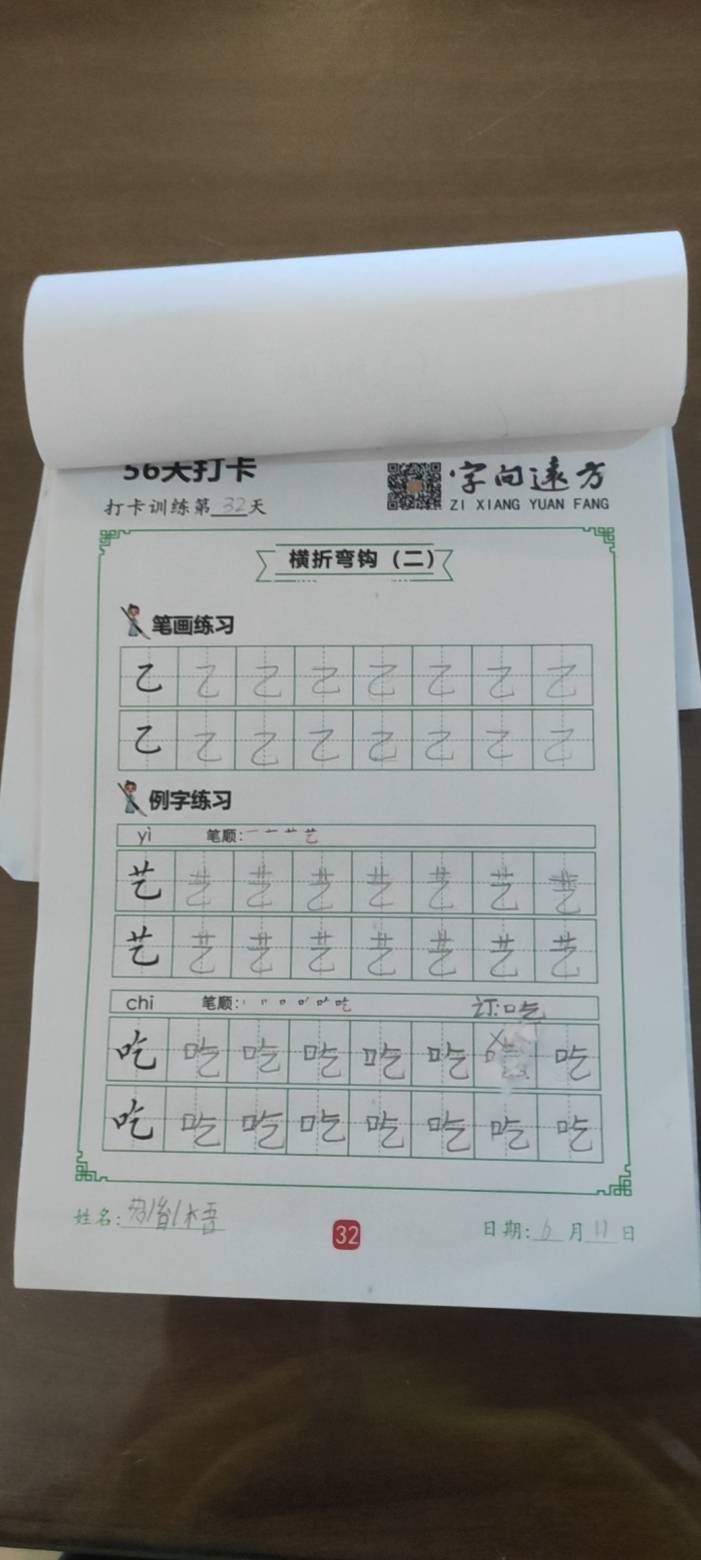 56天打卡
字向远方
打卡训练第32天
ZI XIANG YUAN FANG
横折弯钩（二）
笔画练习
乙乙乙乙乙乙乙乙
乙乙乙乙乙乙乙乙
例字练习
yì 笔顺：一 艹 艺
艺艺艺艺艺艺艺艺
艺艺艺艺艺艺艺艺
chī 笔顺： 吃 订:吃
吃吃吃吃吃吃 吃
吃吃吃吃吃吃吃吃
姓名：
32
日期：6月11日